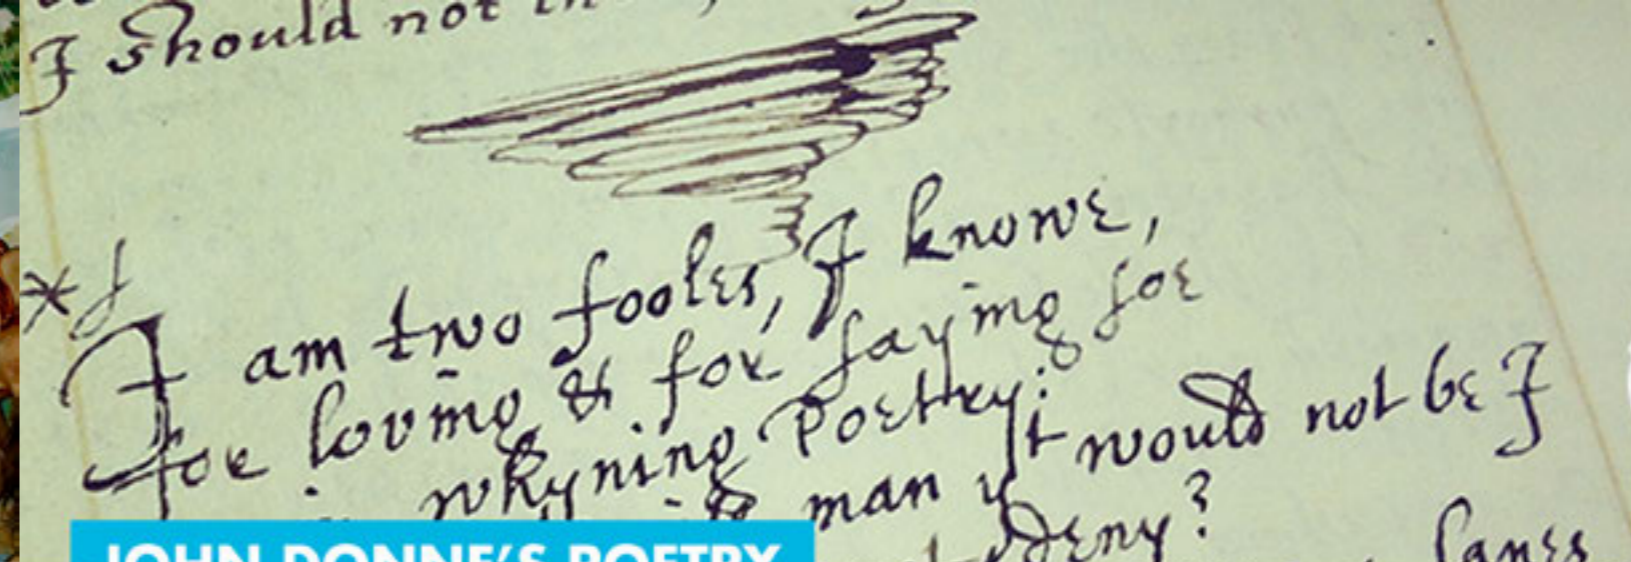 I should not
I am two fooles, I knowe,
for loving & for saying soe
in whyning Poetry;
man yt would not be I
deny?
lanes
JOHN DONNE'S POETRY